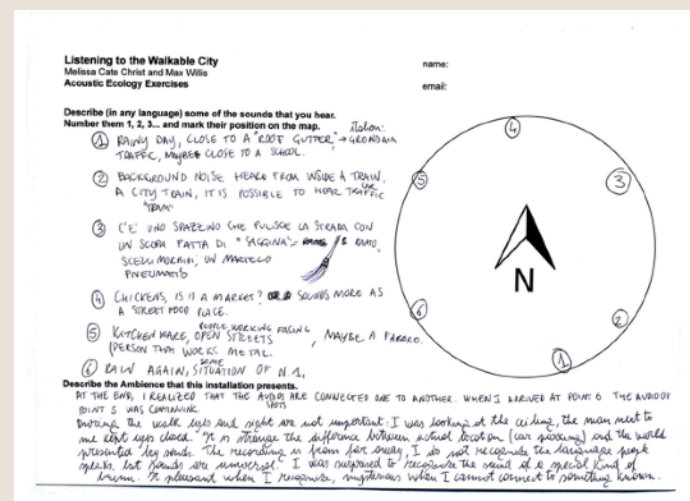 Listening to the Walkable City
Melissa Cate Christ and Max Willis
Acoustic Ecology Exercises
name:
email:
Describe (in any language) some of the sounds that you hear.
Number them 1, 2, 3... and mark their position on the map.
① RAINY DAY, CLOSE TO A "ROOF GUTTER", italian: → GRONDAIA
TRAFFIC, MAYBE CLOSE TO A SCHOOL.
② BACKGROUND NOISE HEARD FROM INSIDE A TRAIN.
A CITY TRAIN, IT IS POSSIBLE TO HEAR CAR TRAFFIC
"TRAM"
③ C'E' UNO SPAZZINO CHE PULISCE LA STRADA CON
UN SCOPA FATTA DI "SAGGINA".
UN MARTELLO
PNEUMATIO
④ CHICKENS, IS IT A MARKET? SOUNDS MORE AS
A STREET FOOD PLACE.
⑤ KITCHEN WARE, PEOPLE WORKING FACING OPEN STREETS, MAYBE A FABBRO.
(PERSON THAT WORKS METAL.
⑥ RAIN AGAIN, SAME SITUATION OF N.1.
4
5
3
N
6
2
1
Describe the Ambience that this installation presents.
AT THE END, I REALIZED THAT THE AUDIO SPOTS ARE CONNECTED ONE TO ANOTHER. WHEN I ARRIVED AT POINT 6 THE AUDIO OF
POINT 5 WAS CONTINUING.
During the walk eyes and sight are not important. I was looking at the ceiling, the man next to
me kept eyes closed. It is strange the difference between actual location (car parking) and the world
presented by sounds. The recording is from far away, I do not recognize the language people
speaks, but sounds are universal. I was surprised to recognize the sound of a special kind of
broom. It pleasant when I recognize, mysterious when I cannot connect to something known.